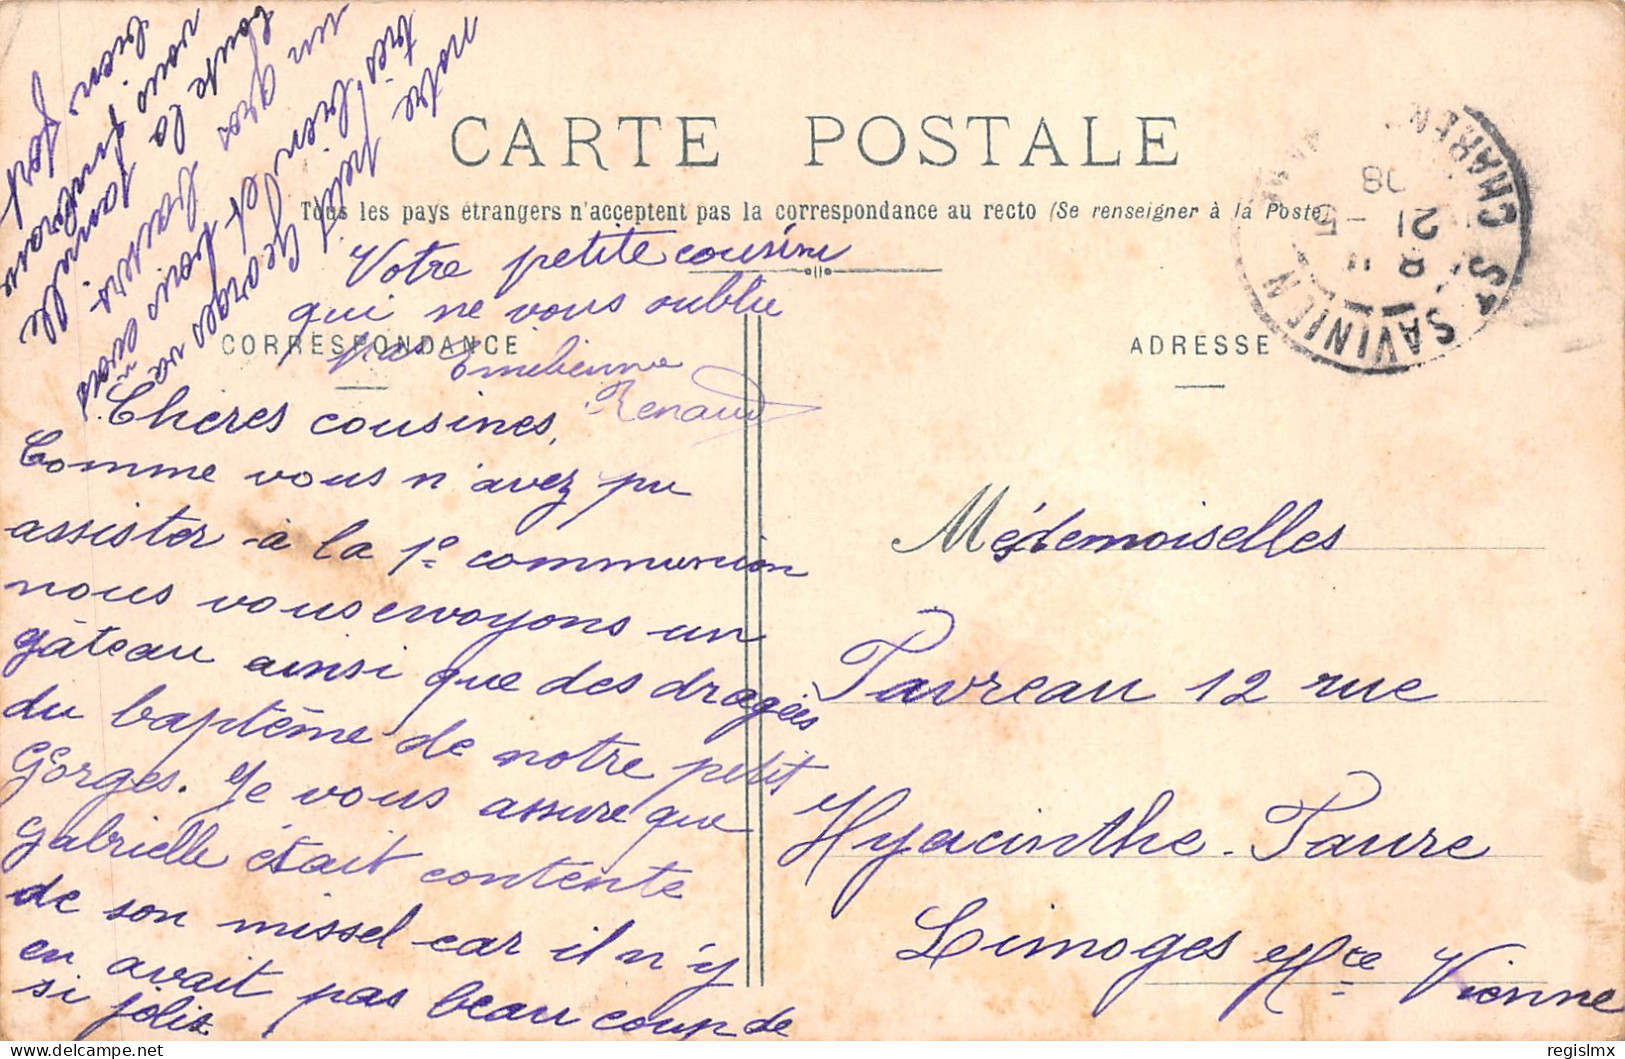 CARTE POSTALE
Tous les pays étrangers n'acceptent pas la correspondance au recto (Se renseigner à la Poste)
CORRESPONDANCE
ADRESSE
Chères cousines,
Comme vous n'avez pu
assister à la 1e communion
nous vous envoyons un
gâteau ainsi que des dragées
du baptême de notre petit
Gorges. Je vous assure que
Gabrielle était contente
de son missel car il n'y
en avait pas beaucoup de
si jolis
notre petit Georges va
très bien et vous avez
un gros baisers
toute la famille
vous
bien fort
Votre petite cousine
qui ne vous oublie
pas Emilienne
Renaud
Mesdemoiselles
Tavreau 12 rue
Hyacinthe-Faure
Limoges Hte Vienne
ST SAVINIEN
CHAREN
8
21 - 5
08
regislmx